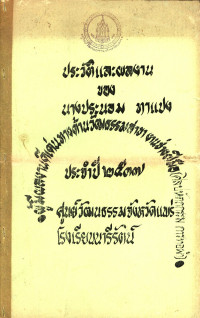 ประวัติและผลงาน
ของ
นางประนอม ทาแปง
ผู้มีผลงานดีเด่นทางด้านวัฒนธรรมสาขา
ประจำปี ๒๕๓๗
ศูนย์วัฒนธรรมจังหวัดแพร่
โรงเรียนนารีรัตน์